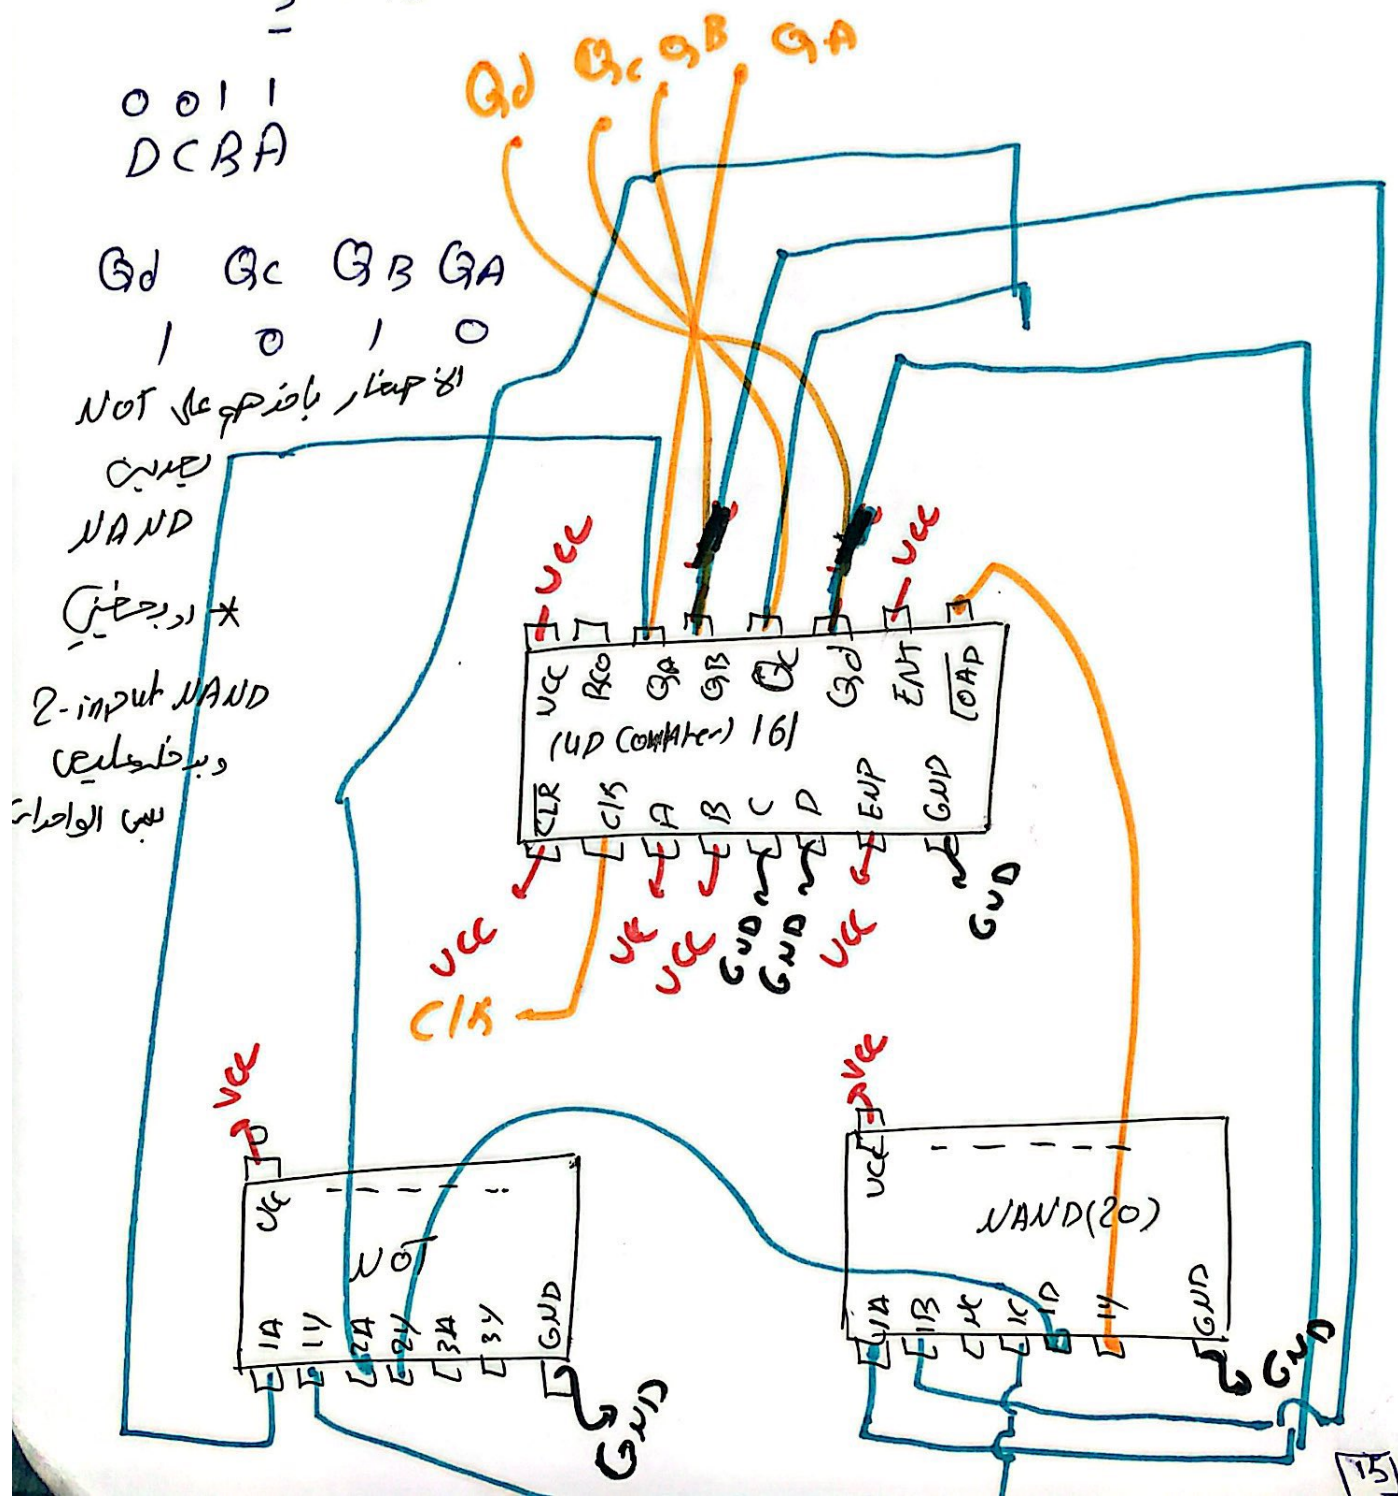 0 0 1 1
D C B A
Qd Qc QB QA
Qd Qc QB QA
1 0 1 0
الاصفار باخذهم على NOT
بعدين
NAND
*
2-input NAND
وبدخل عليهن
بس الواحدات
VCC
VCC
VCC RCO QA QB Qc Qd ENT LOAD
(UP Counter) 161
CLR Clk A B C D ENP GND
VCC
VCC
VCC
GND
GND
VCC
GND
Clk
VCC
VCC
NOT
1A 1Y 2A 2Y 3A 3Y GND
GND
VCC
VCC
NAND(20)
1A 1B NC 1C 1D 1Y GND
GND
15